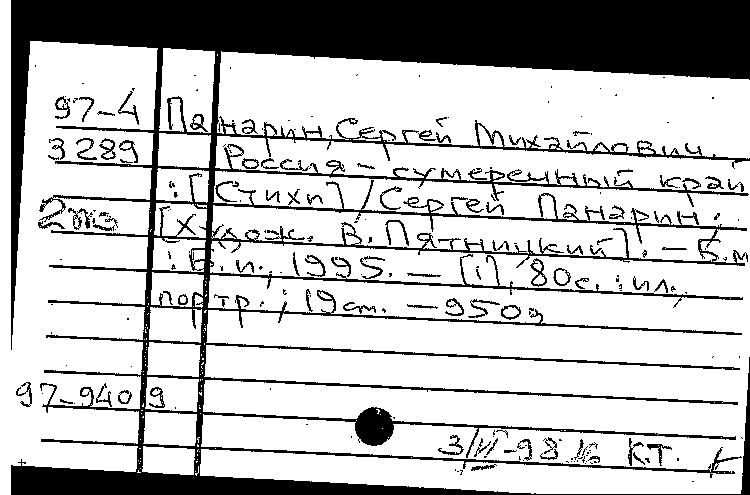 97-4 Панарин, Сергей Михайлович.
3289 Россия - сумеречный край
: [Стихи] / Сергей Панарин ;
2экз [Худож. В. Пятницкий]. - Б.м
: Б.и., 1995. - [1], 80с. : ил.,
портр. ; 19см. - 950э
97-9409
3/VI-98 К.Т.